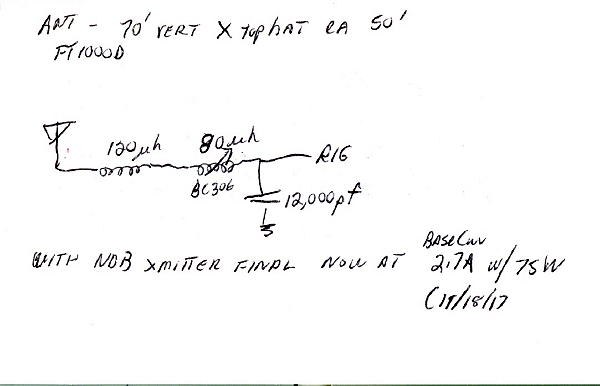 ANT - 70' VERT X TOPHAT EA 50'
FT1000D
120µh 80µh
RIG
BC306
12,000pf
WITH NDB XMITTER FINAL NOW AT BASE CUR 2.7A W/75W